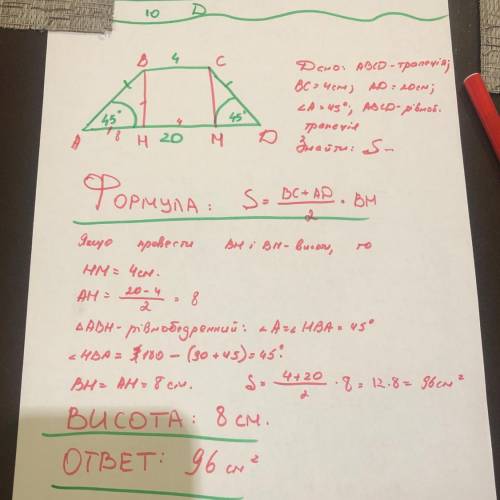 10 D
4
B C
45° 45°
A 8 H 20 M D
Дано: ABCD-трапеція;
BC=4см; AD=20см;
∠A=45°, ABCD-рівноб.
трапеція
Знайти: S-
ФОРМУЛА: S= BC+AD/2 · BH
Якщо провести BH і BH-висоти, то
HM=4см.
AH= 20-4/2 = 8
△ABH-рівнобедренний: ∠A=∠HBA=45°
∠HBA= 180-(90+45)=45°.
BH=AH=8см. S= 4+20/2 ·8=12·8=96см²
ВИСОТА: 8см.
ОТВЕТ: 96см²